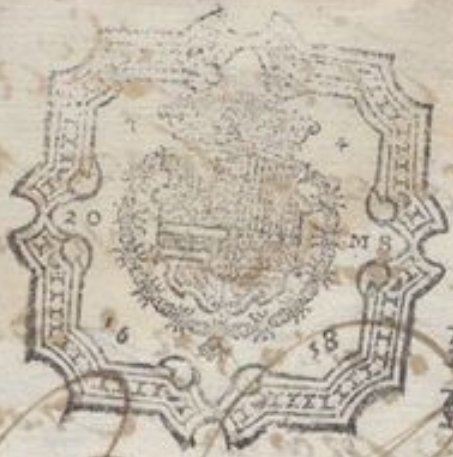 20 MS
16 38